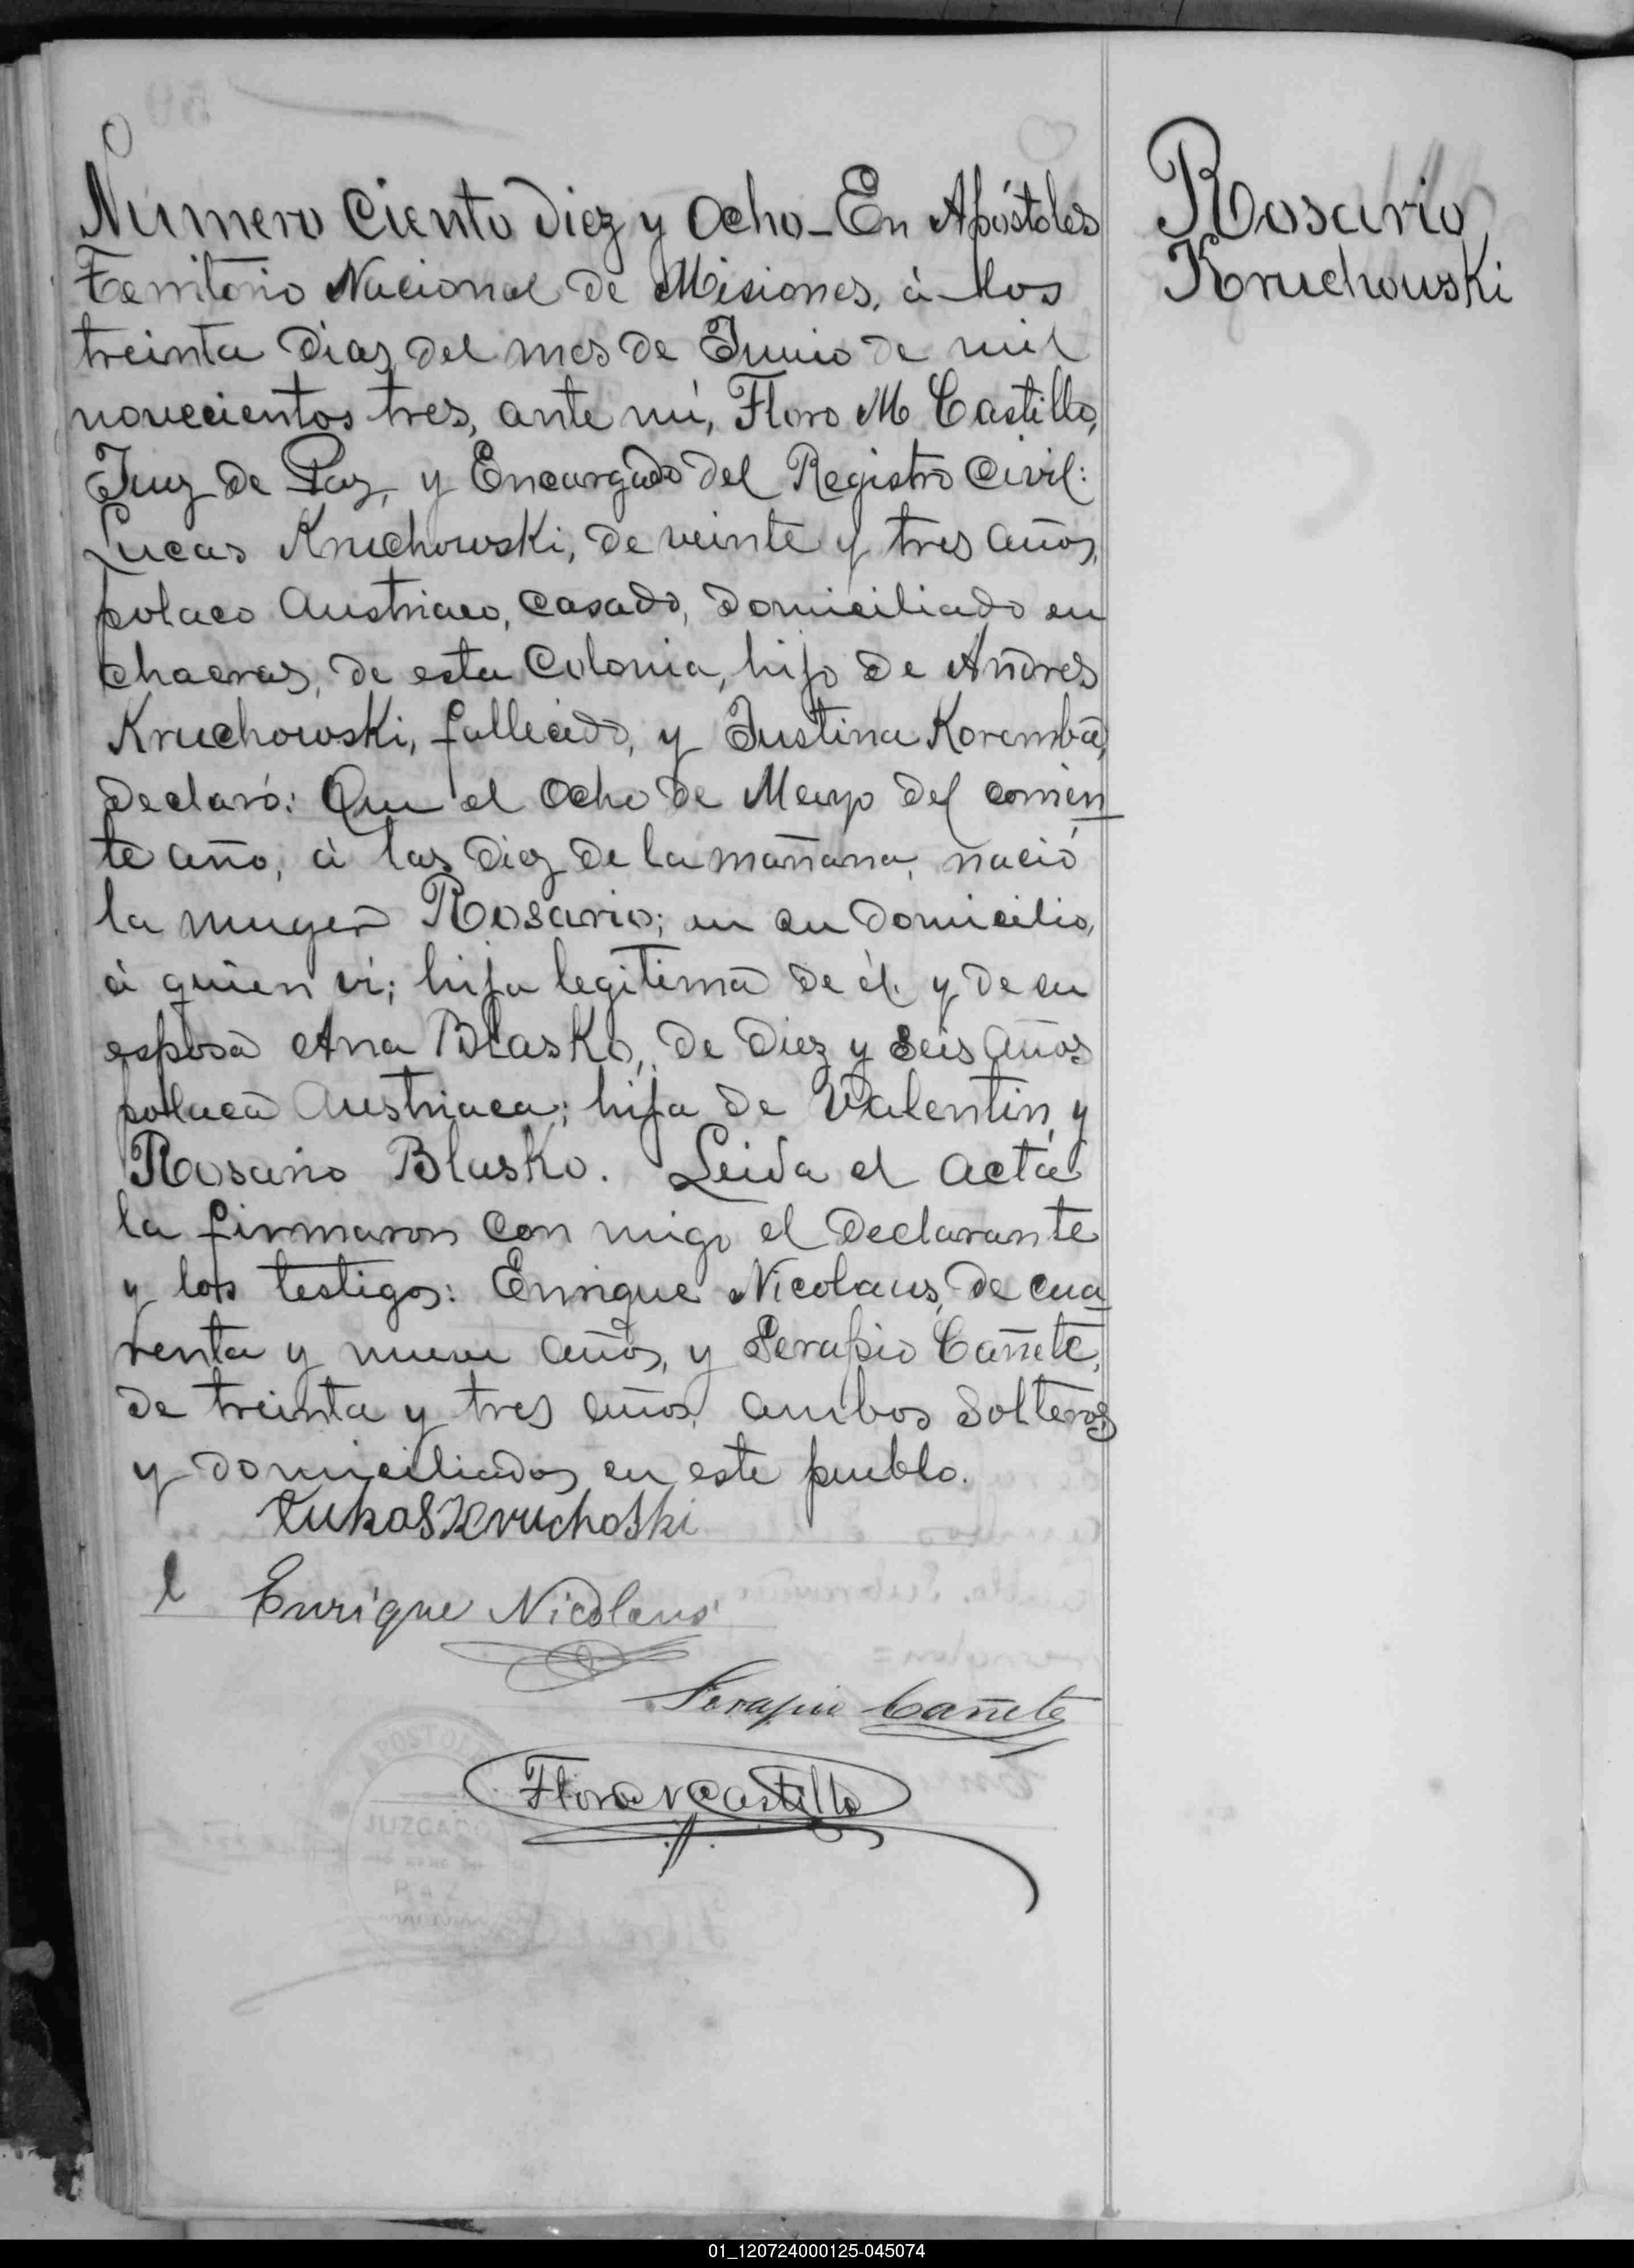 Número Ciento diez y Ocho_En Apóstoles
Territorio Nacional de Misiones, á los
treinta dias del mes de Junio de mil
novecientos tres, ante mí, Floro M Castillo,
Juez de Paz, y Encargado del Registro Civil:
Lucas Kruchowski, de veinte y tres años,
polaco Austriaco, casado, domiciliado en
chacras, de esta Colonia, hijo de Andres
Kruchowski, fallecido, y Justina Koremba,
declaró: Que el Ocho de Mayo del corrien
te año, á las diez de la mañana, nació
la muger Rosario; en su domicilio,
á quien ví; hija legitima de él y de su
esposa Ana Blasko, de diez y seis años
polaca Austriaca; hija de Valentin y
Rosario Blasko. Leida el acta
la firmaron con migo el declarante
y los testigos: Enrique Nicolaus, de cua
renta y nueve años, y Serapio Cañete,
de treinta y tres años, ambos Solteros
y domiciliados en este pueblo.
Łukas Kruchoski
Enrique Nicolaus
Serapio Cañete
Floro M Castillo
Rosario
Kruchouski
APOSTOL
JUZGADO
PAZ
01_120724000125-045074